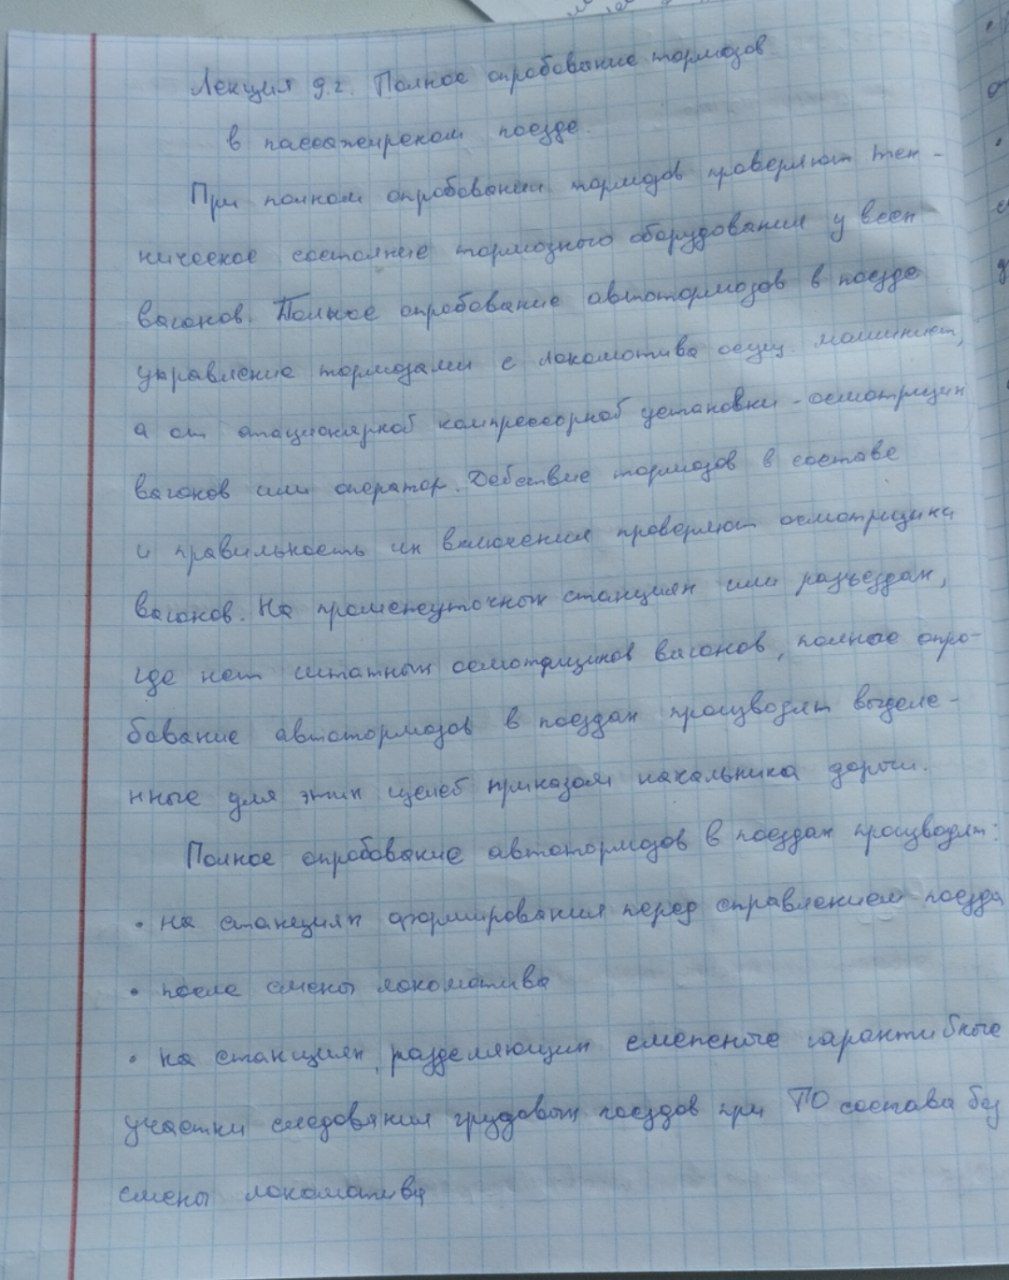 Лекция 9.2. Полное опробование тормозов
в пассажирском поезде.
При полном опробовании тормозов проверяют тех-
ническое состояние тормозного оборудования у всех
вагонов. Полное опробование автотормозов в поезде
управление тормозами с локомотива осущ. машинист,
а от стационарной компрессорной установки - осмотрщик
вагонов или оператор. Действие тормозов в составе
и правильность их включения проверяют осмотрщики
вагонов. На промежуточных станциях или разъездах,
где нет штатных осмотрщиков вагонов, полное опро-
бование автотормозов в поездах производят выделе-
нные для этих целей приказом начальника дороги.
Полное опробование автотормозов в поездах производят:
• на станциях формирования перед справлением поезда
• после смены локомотива
• на станциях, разделяющих смежные гарантийные
участки следования грузовых поездов при ТО состава без
смены локомотива